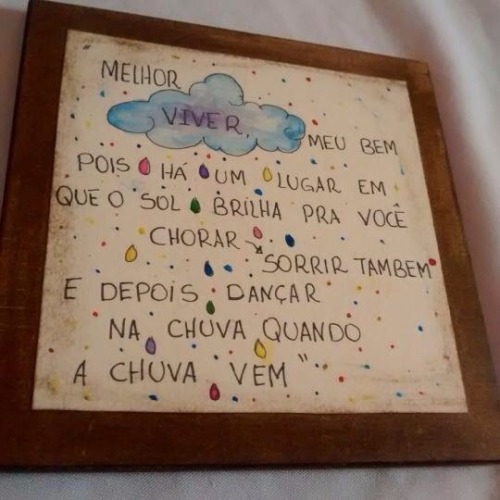 "MELHOR
VIVER, MEU BEM
POIS HÁ UM LUGAR EM
QUE O SOL BRILHA PRA VOCÊ
CHORAR
SORRIR TAMBEM
E DEPOIS DANÇAR
NA CHUVA QUANDO
A CHUVA VEM"